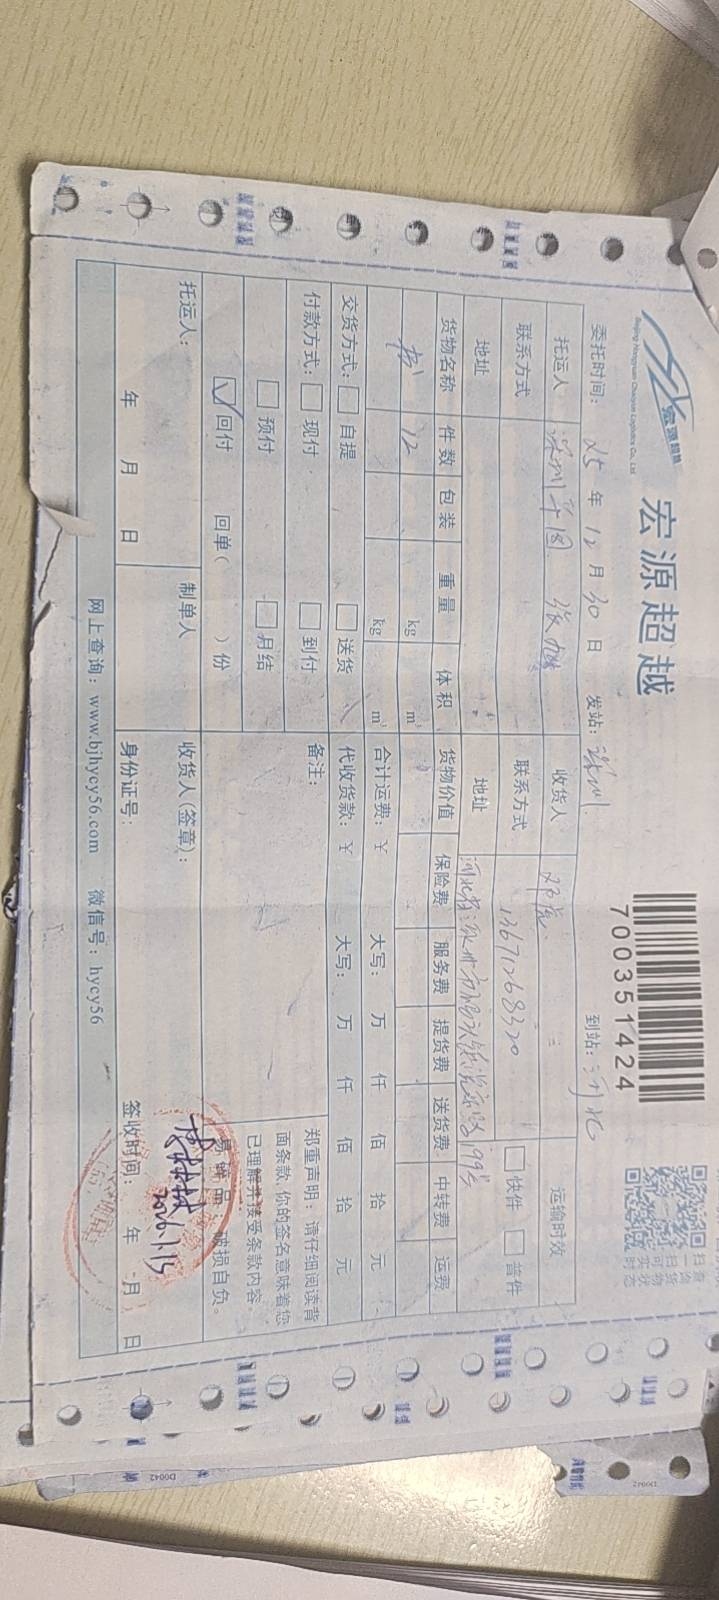 宏源超越
宏源超越
Beijing Hongyuan Chaoyue Logistics Co., Ltd
700351424
扫查
描询
可货
实物
时状
态
委托时间: 25 年 12 月 30 日 发站: 深圳 到站: 河北
托运人 深圳 收货人 邓 运输时效
联系方式 联系方式 13671268320 快件 普件
地址 地址 河北省涿州市 199号
货物名称 件数 包装 重量 体积 货物价值 保险费 服务费 提货费 送货费 中转费 运费
书 12 kg m³
kg m³ 合计运费: ¥ 大写: 万 仟 佰 拾 元
交货方式: 自提 送货 代收货款: ¥ 大写: 万 仟 佰 拾 元
付款方式: 现付 到付 备注:
预付 月结
回付 回单( )份
郑重声明:请仔细阅读背
面条款,你的签名意味着您
已理解并接受条款内容。
易碎品 破损自负。
托运人: 制单人 收货人(签章):
年 月 日 身份证号: 签收时间: 年 月 日
2026.1.15
网上查询: www.bjhycy56.com 微信号: hycy56
D0042
D0042